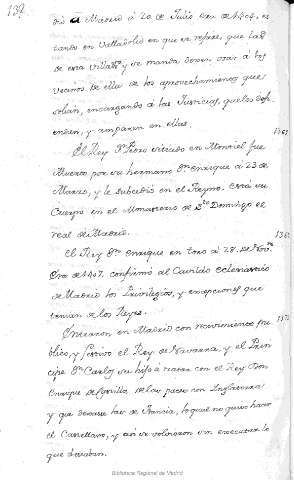 137
dió a Madrid á 20 de Julio Era de 1404, es
tando en Valladolid en que se refiere, que las
de esta Villa y se manda dexen usar á los
vecinos de ella de los aprovechamientos que
solian, encargando á las Justicias, que los defi
enden, y amparen en ellas.
El Rey Dn Pedro citiado en Montiel fue
Muerto por su hermano Dn enrique á 23 de
Marzo, y le subcedió en el Reyno. Está su
Cuerpo en el Monasterio de Sto Domingo el
real de Madrid.
El Rey Dn enrique en toro á 28 de Nove
Era de 1407. confirmó al Cavildo eclesiastico
de Madrid los Privilegios, y excepciones que
tenian de los Reyes.
Entraron en Madrid con
el Rey de Navarra, y el Prin
cipe Dn Carlos su hijo á tratar con el Rey Don
Enrique de Castilla se las paces con Inglaterra
y que dexase las de Francia, lo qual no quiso hacer
el Castellano, y asi se volvieron sin executar lo
que deseaban.
Biblioteca Regional de Madrid